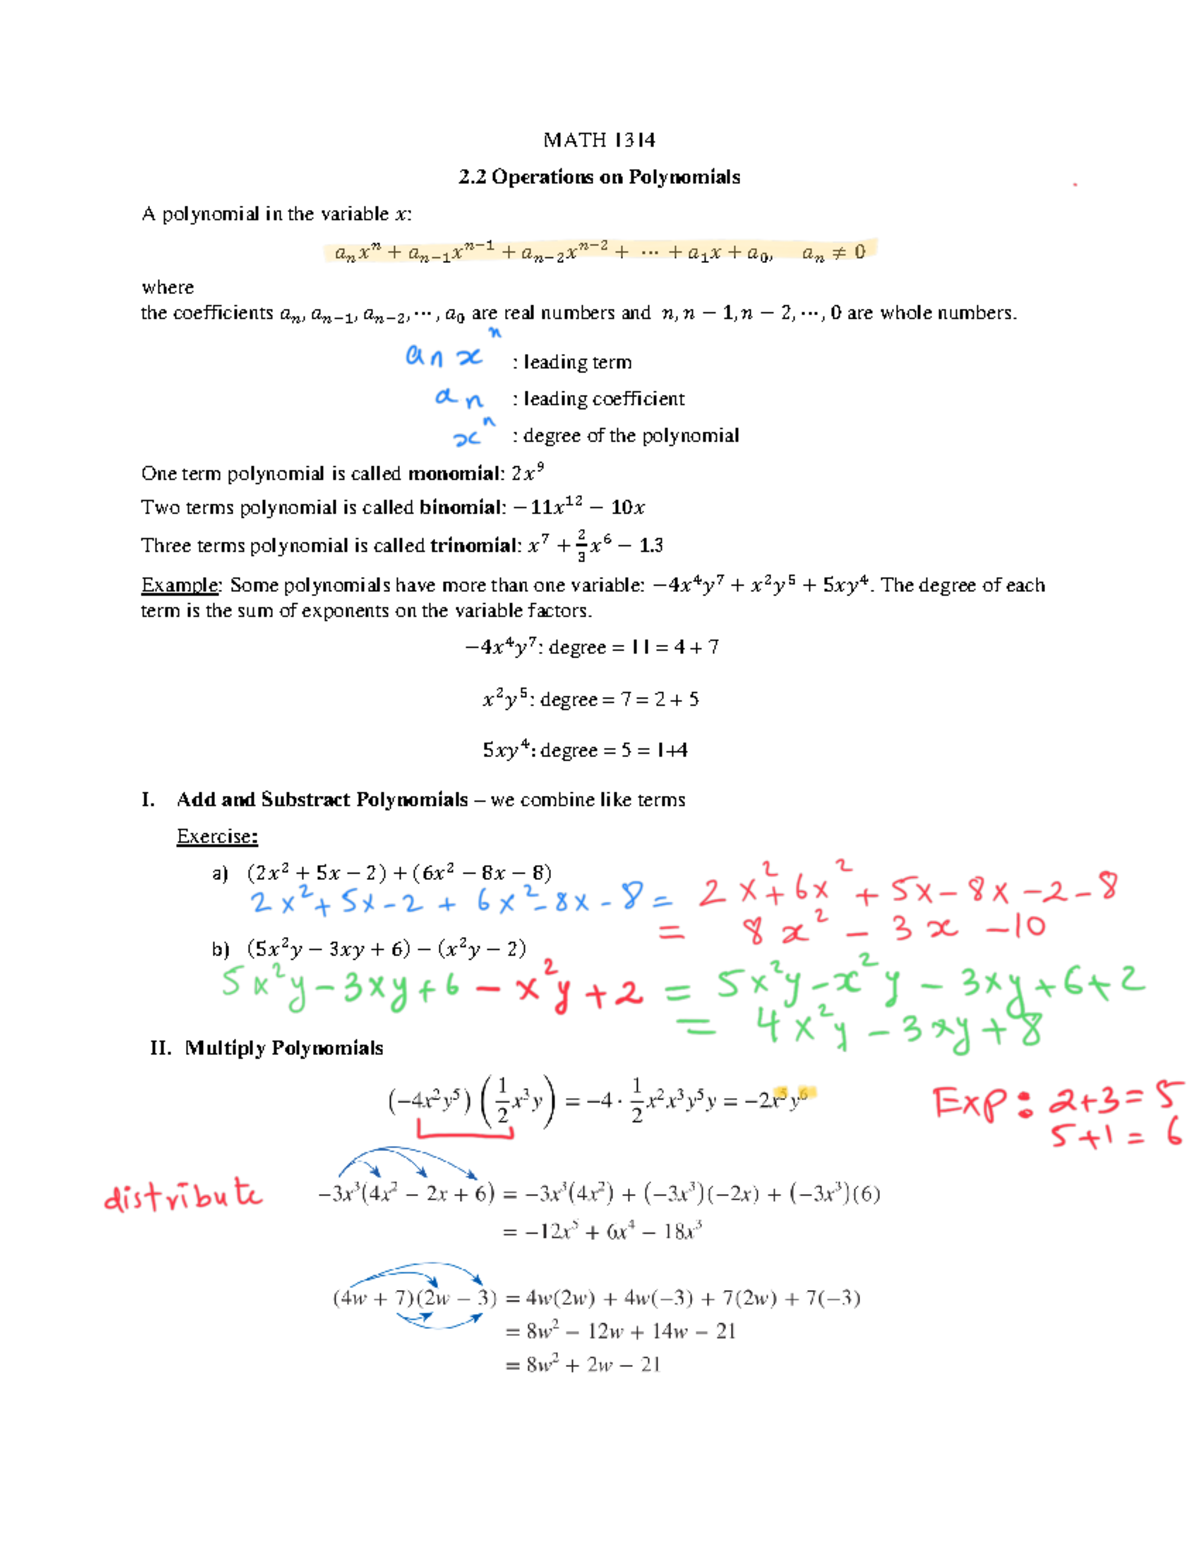 MATH 1314
2.2 Operations on Polynomials
A polynomial in the variable x:
aₙxⁿ + aₙ₋₁xⁿ⁻¹ + aₙ₋₂xⁿ⁻² + ⋯ + a₁x + a₀,  aₙ ≠ 0
where
the coefficients aₙ, aₙ₋₁, aₙ₋₂, ⋯ , a₀ are real numbers and n, n − 1, n − 2, ⋯, 0 are whole numbers.
aₙ xⁿ : leading term
aₙ : leading coefficient
xⁿ : degree of the polynomial
One term polynomial is called monomial: 2x⁹
Two terms polynomial is called binomial: −11x¹² − 10x
Three terms polynomial is called trinomial: x⁷ + 2/3 x⁶ − 1.3
Example: Some polynomials have more than one variable: −4x⁴y⁷ + x²y⁵ + 5xy⁴. The degree of each
term is the sum of exponents on the variable factors.
−4x⁴y⁷: degree = 11 = 4 + 7
x²y⁵: degree = 7 = 2 + 5
5xy⁴: degree = 5 = 1+4
I. Add and Substract Polynomials – we combine like terms
Exercise:
a) (2x² + 5x − 2) + (6x² − 8x − 8)
2x² + 5x − 2 + 6x² − 8x − 8 = 2x² + 6x² + 5x − 8x − 2 − 8
= 8x² − 3x − 10
b) (5x²y − 3xy + 6) − (x²y − 2)
5x²y − 3xy + 6 − x²y + 2 = 5x²y − x²y − 3xy + 6 + 2
= 4x²y − 3xy + 8
II. Multiply Polynomials
(−4x²y⁵)(1/2 x³y) = −4 · 1/2 x²x³y⁵y = −2x⁵y⁶ Exp: 2+3=5
5+1=6
distribute −3x³(4x² − 2x + 6) = −3x³(4x²) + (−3x³)(−2x) + (−3x³)(6)
= −12x⁵ + 6x⁴ − 18x³
(4w + 7)(2w − 3) = 4w(2w) + 4w(−3) + 7(2w) + 7(−3)
= 8w² − 12w + 14w − 21
= 8w² + 2w − 21